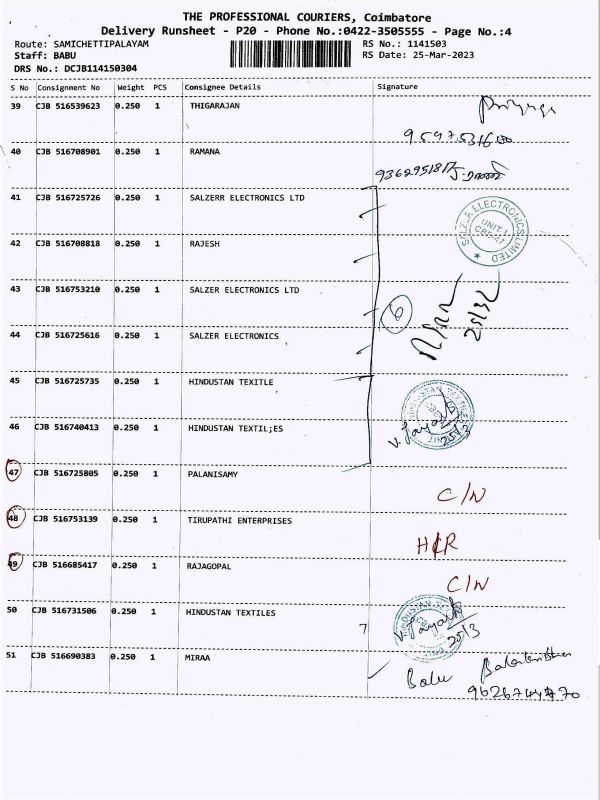 THE PROFESSIONAL COURIERS, Coimbatore
Delivery Runsheet - P20 - Phone No.:0422-3505555 - Page No.:4
Route: SAMICHETTIPALAYAM RS No.: 1141503
Staff: BABU RS Date: 25-Mar-2023
DRS No.: DCJB114150304
S No Consignment No Weight PCS Consignee Details Signature
39 CJB 516539623 0.250 1 THIGARAJAN
40 CJB 516708901 0.250 1 RAMANA
41 CJB 516725726 0.250 1 SALZERR ELECTRONICS LTD
SALZER ELECTRONICS LIMITED
UNIT-1
CBE-47
42 CJB 516708818 0.250 1 RAJESH
43 CJB 516753210 0.250 1 SALZER ELECTRONICS LTD
6
44 CJB 516725616 0.250 1 SALZER ELECTRONICS
45 CJB 516725735 0.250 1 HINDUSTAN TEXITLE
46 CJB 516740413 0.250 1 HINDUSTAN TEXTIL;ES
25/3
47 CJB 516725805 0.250 1 PALANISAMY
C/N
48 CJB 516753139 0.250 1 TIRUPATHI ENTERPRISES
49 CJB 516685417 0.250 1 RAJAGOPAL
C/N
50 CJB 516731506 0.250 1 HINDUSTAN TEXTILES
7
25/3
51 CJB 516690383 0.250 1 MIRAA
Babu